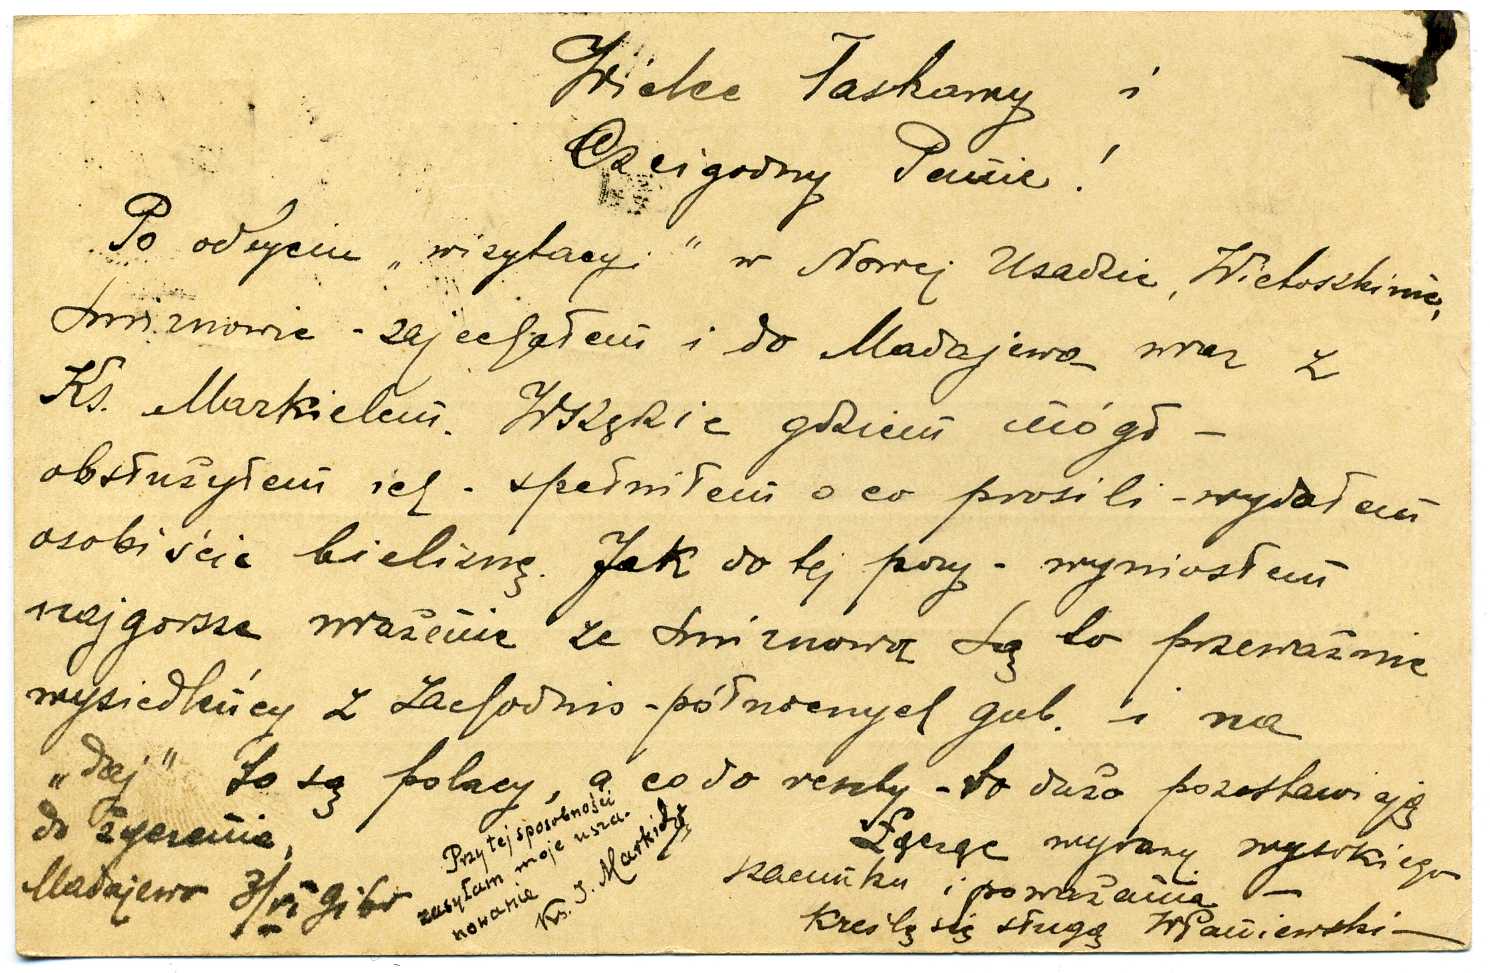 Wielce Łaskawy i
Czcigodny Panie!
Po odbyciu „wizytacyi" w Nowej Usadzie, Wietoszkinie,
Smirnowie - zajechałem i do Madajewa wraz z
Ks. Markielem. Wszędzie gdziem mógł -
obsłużyłem ich - spełniłem o co prosili - wydałem
osobiście bieliznę. Jak do tej pory - wyniosłem
najgorsze wrażenie ze Smirnowa Są to przeważnie
wysiedleńcy z zachodnio-północnych gub. - i na
„daj" to są polacy, a co do reszty - to dużo pozostawiają
do życzenia,
Łącząc wyrazy wysokiego
szacunku i poważania -
kreślę się sługą
Madajewo
Przy tej sposobności
zasyłam moje usza-
nowanie
Ks. J.